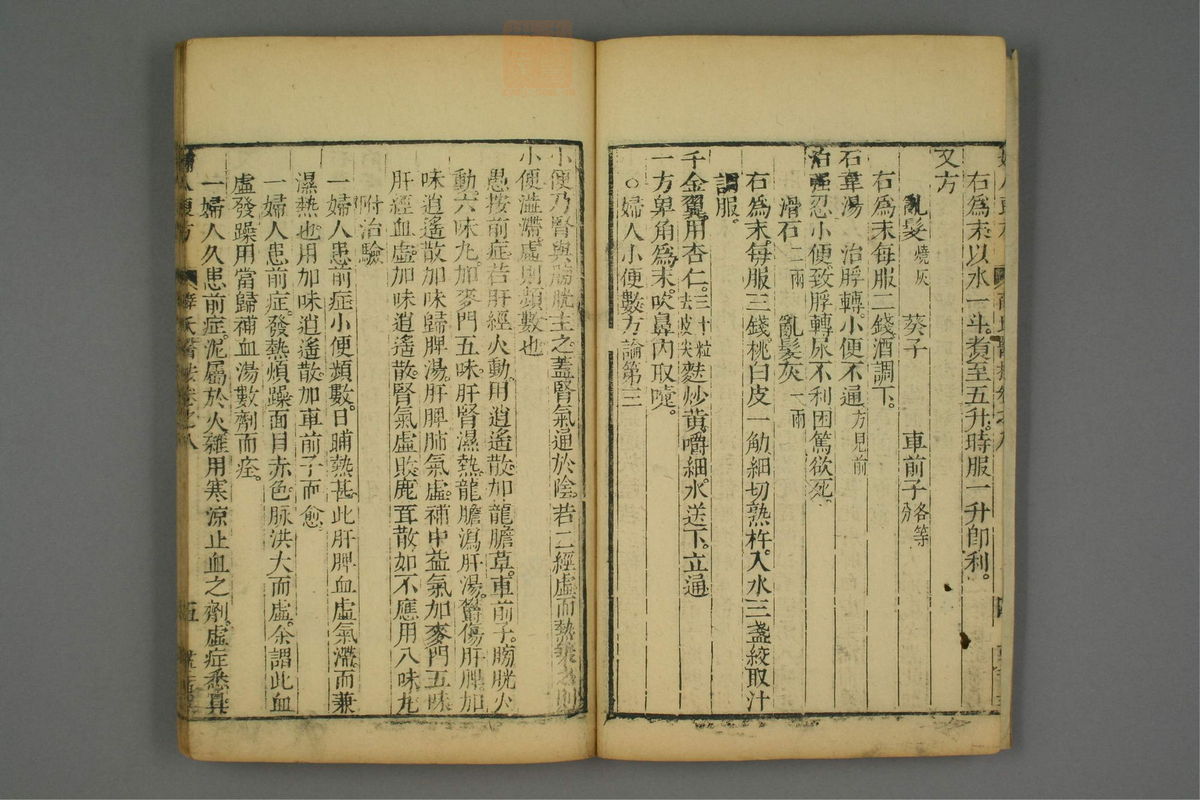 右爲末以水一斗。煑至五升。時服一升卽利。
又方
亂髮燒灰 葵子 車前子各等分
右爲末每服二錢酒調下。
石韋湯 治脬轉。小便不通方見前
治強忍小便致脬轉尿不利困篤欲死。
滑石二兩 亂髮灰一兩
右爲末。每服三錢桃白皮一觔細切熟杵。入水三盞絞取汁
調服。
千金翼用杏仁。三十粒去皮尖麩炒黃。嚼細。水送下。立通
一方皁角爲末。吹鼻內取嚏。
○婦人小便數方論第三
小便乃腎與膀胱主之。蓋腎氣通於陰。若二經虛而熱乘之則
小便澁滯。虛則頻數也
愚按前症。若肝經火動。用逍遙散。加龍膽草。車前子。膀胱火
動。六味丸。加麥門五味。肝腎濕熱。龍膽瀉肝湯。鬱傷肝脾。加
味逍遙散。加味歸脾湯。肝脾肺氣虛。補中益氣加麥門五味
肝經血虛。加味逍遙散。腎氣虛敗。鹿茸散。如不應用八味丸
附治驗
一婦人患前症。小便頻數。日晡熱甚。此肝脾血虛氣滯而兼
濕熱也。用加味逍遙散加車前子而愈
一婦人患前症。發熱煩躁。面目赤色。脉洪大而虛。余謂此血
虛發躁。用當歸補血湯數劑而痊。
一婦人久患前症。泥屬於火。雜用寒凉止血之劑。虛症悉具
婦人良方
薛氏醫按卷之八
五